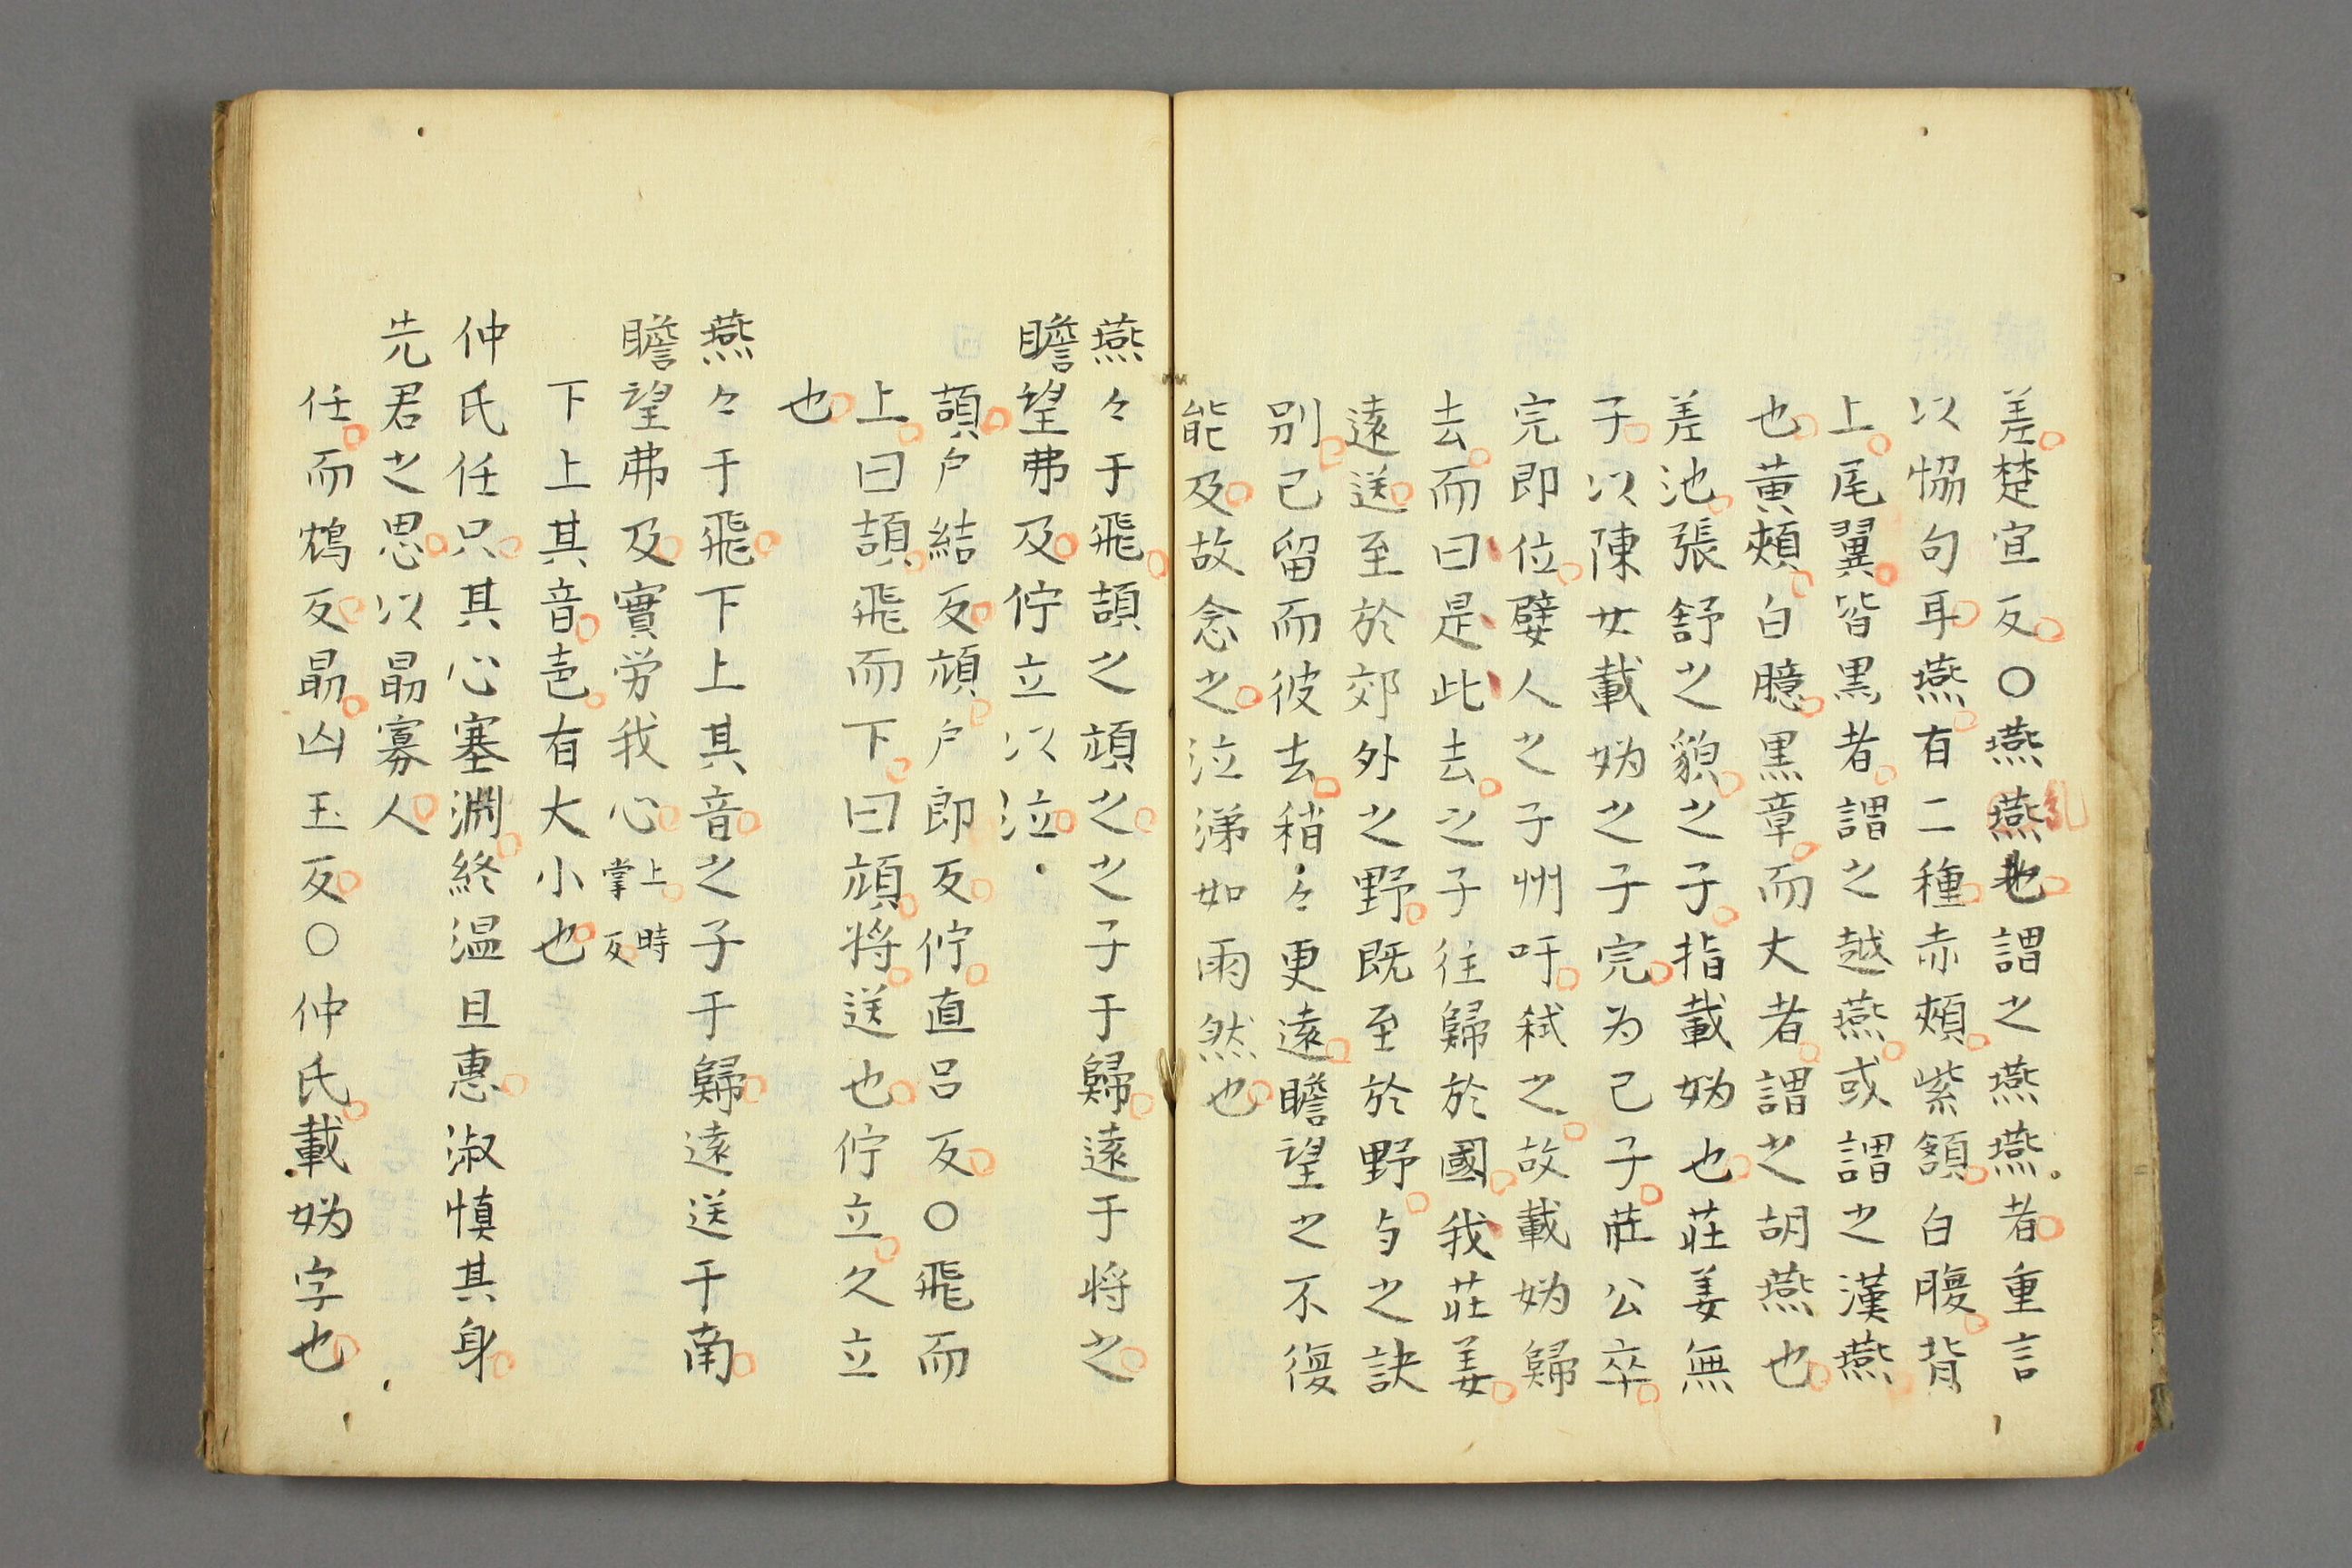 差楚宜反○燕燕乙也謂之燕燕者重言
以恊句耳燕有二種赤頰紫頷白腹背
上尾翼皆黒者謂之越燕或謂之漢燕
也黄頰白臆黒章而大者謂之胡燕也
差池張舒之貌之子指載媯也莊姜無
子以陳女載媯之子完为己子莊公卒
完即位嬖人之子州吁弑之故載媯歸
去而曰是此去之子往歸於國我莊姜
遠送至於郊外之野既至於野与之訣
別已留而彼去稍々更遠瞻望之不復
能及故念之泣涕如雨然也
燕々于飛頡之頏之之子于歸遠于将之
瞻望弗及佇立以泣
頡戸結反頏戸郎反佇直呂反○飛而
上曰頡飛而下曰頏将送也佇立久立
也
燕々于飛下上其音之子于歸遠送于南
瞻望弗及實労我心上時掌反
下上其音音有大小也
仲氏任只其心塞淵終温且惠淑慎其身
先君之思以勗寡人
任而鴆反勗凶玉反○仲氏載媯字也